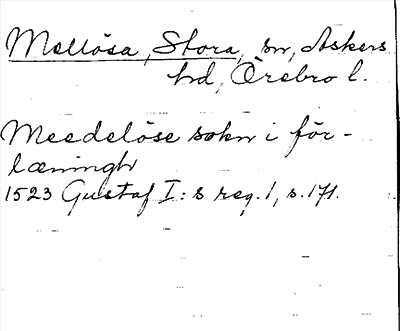 Mellösa, Stora, sn, Askers
hd, Örebro l.
Meedelöse sokn i för-
læningh
1523 Gustaf I:s reg. 1, s. 171.